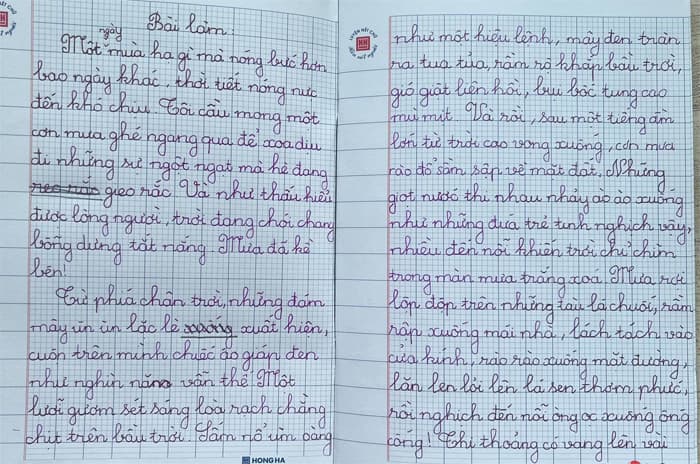 Bài làm:
ngày
Một mùa hạ gì mà nóng bức hơn
bao ngày khác, thời tiết nóng nực
đến khó chịu. Tôi cầu mong một
cơn mưa ghé ngang qua để xoa dịu
đi những sự ngột ngạt mà hè đang
gieo rắc. Và như thấu hiểu
được lòng người, trời đang chói chang
bỗng dưng tắt nắng. Mưa đã kề
bên!
Từ phía chân trời, những đám
mây ùn ùn lắc lè xuất hiện,
cuộn trên mình chiếc áo gián đen
như nghìn năm vẫn thế. Một
lưỡi gươm sét sáng loà rạch chằng
chịt trên bầu trời. Sấm nổ ùm oàng
HONG HA
như một hiệu lệnh, mây đen tràn
ra tua tủa, rầm rộ khắp bầu trời,
gió giật liên hồi, bụi bốc tung cao
mù mịt. Và rồi, sau một tiếng ầm
lớn từ trời cao vọng xuống, cơn mưa
rào đổ sầm sập về mặt đất. Những
giọt nước thi nhau nhảy ào ào xuống
như những đứa trẻ tinh nghịch vậy,
nhiều đến nỗi khiến trời chỉ chìm
trong màn mưa trắng xoá. Mưa rơi
lộp độp trên những tàu lá chuối, rầm
rập xuống mái nhà, lách tách vào
cửa kính, rào rào xuống mặt đường,
lăn len lỏi lên lá sen thơm phức,
rồi nghịch đến nỗi òng ọc xuống ống
cống! Thi thoảng có vang lên vài